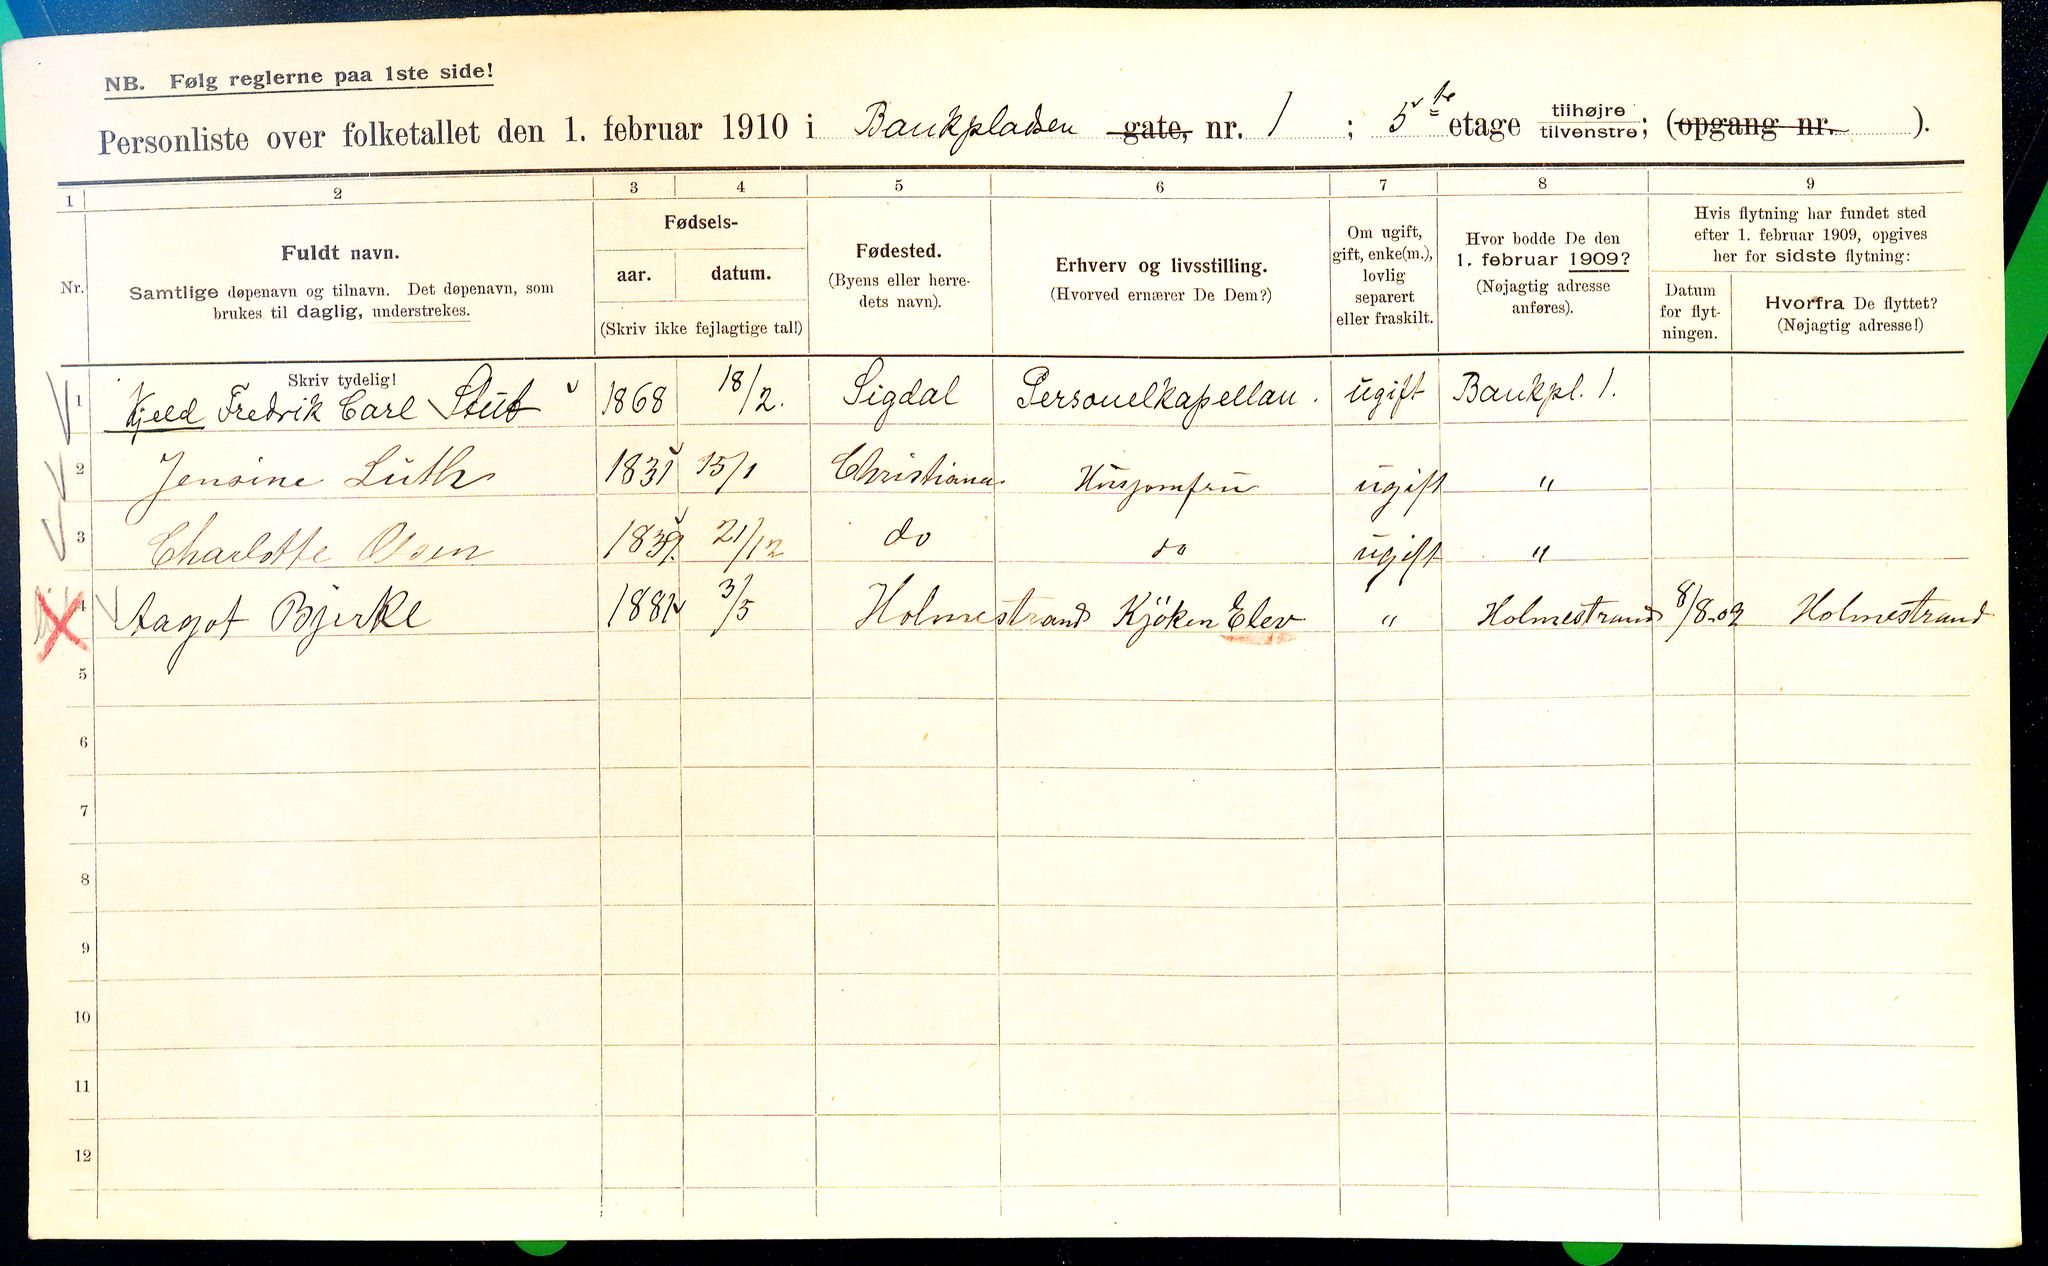 NB. Følg reglerne paa 1ste side!
Personliste over folketallet den 1. februar 1910 i Bankpladsen gate, nr. 1 ; 5te etage tilhøjre tilvenstre; (opgang nr. ).
1 2 3 4 5 6 7 8 9
Nr.
Fuldt navn.
Samtlige døpenavn og tilnavn. Det døpenavn, som
brukes til daglig, understrekes.
Skriv tydelig!
Fødsels-
aar. datum.
(Skriv ikke fejlagtige tal!)
Fødested.
(Byens eller herre-
dets navn).
Erhverv og livsstilling.
(Hvorved ernærer De Dem?)
Om ugift,
gift, enke(m.),
lovlig
separert
eller fraskilt.
Hvor bodde De den
1. februar 1909?
(Nøjagtig adresse
anføres).
Hvis flytning har fundet sted
efter 1. februar 1909, opgives
her for sidste flytning:
Datum
for flyt-
ningen.
Hvorfra De flyttet?
(Nøjagtig adresse!)
1 Kjeld Fredrik Carl Stub 1868 18/2. Sigdal Personelkapellan. ugift Bankpl. 1.
2 Jensine Luth 1831 15/1 Christiania Husjomfru ugift "
3 Charlotte Olsen 21/12 do do ugift "
4 Aagot Bjerke 3/5 Holmestrand Kjöken Elev " Holmestrand 8/8-09 Holmestrand
5
6
7
8
9
10
11
12